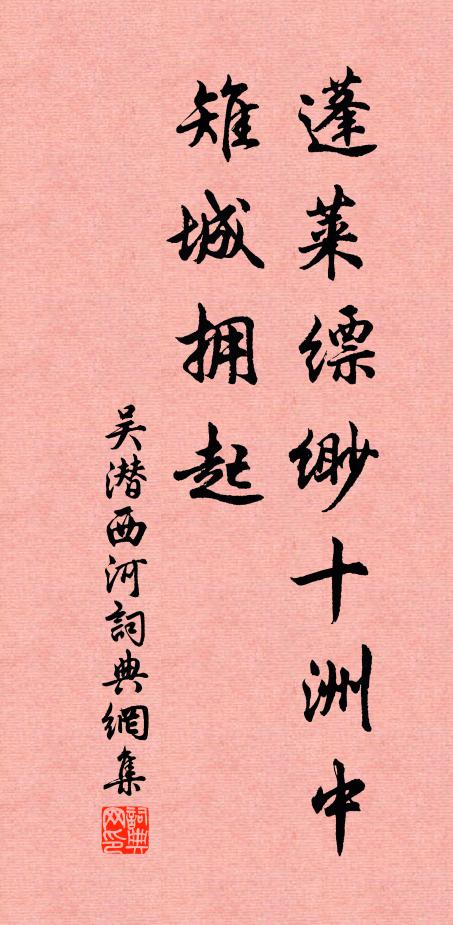 蓬莱缥缈十洲中
雉城拥起
吴潜西河詞典網集
詞典网印